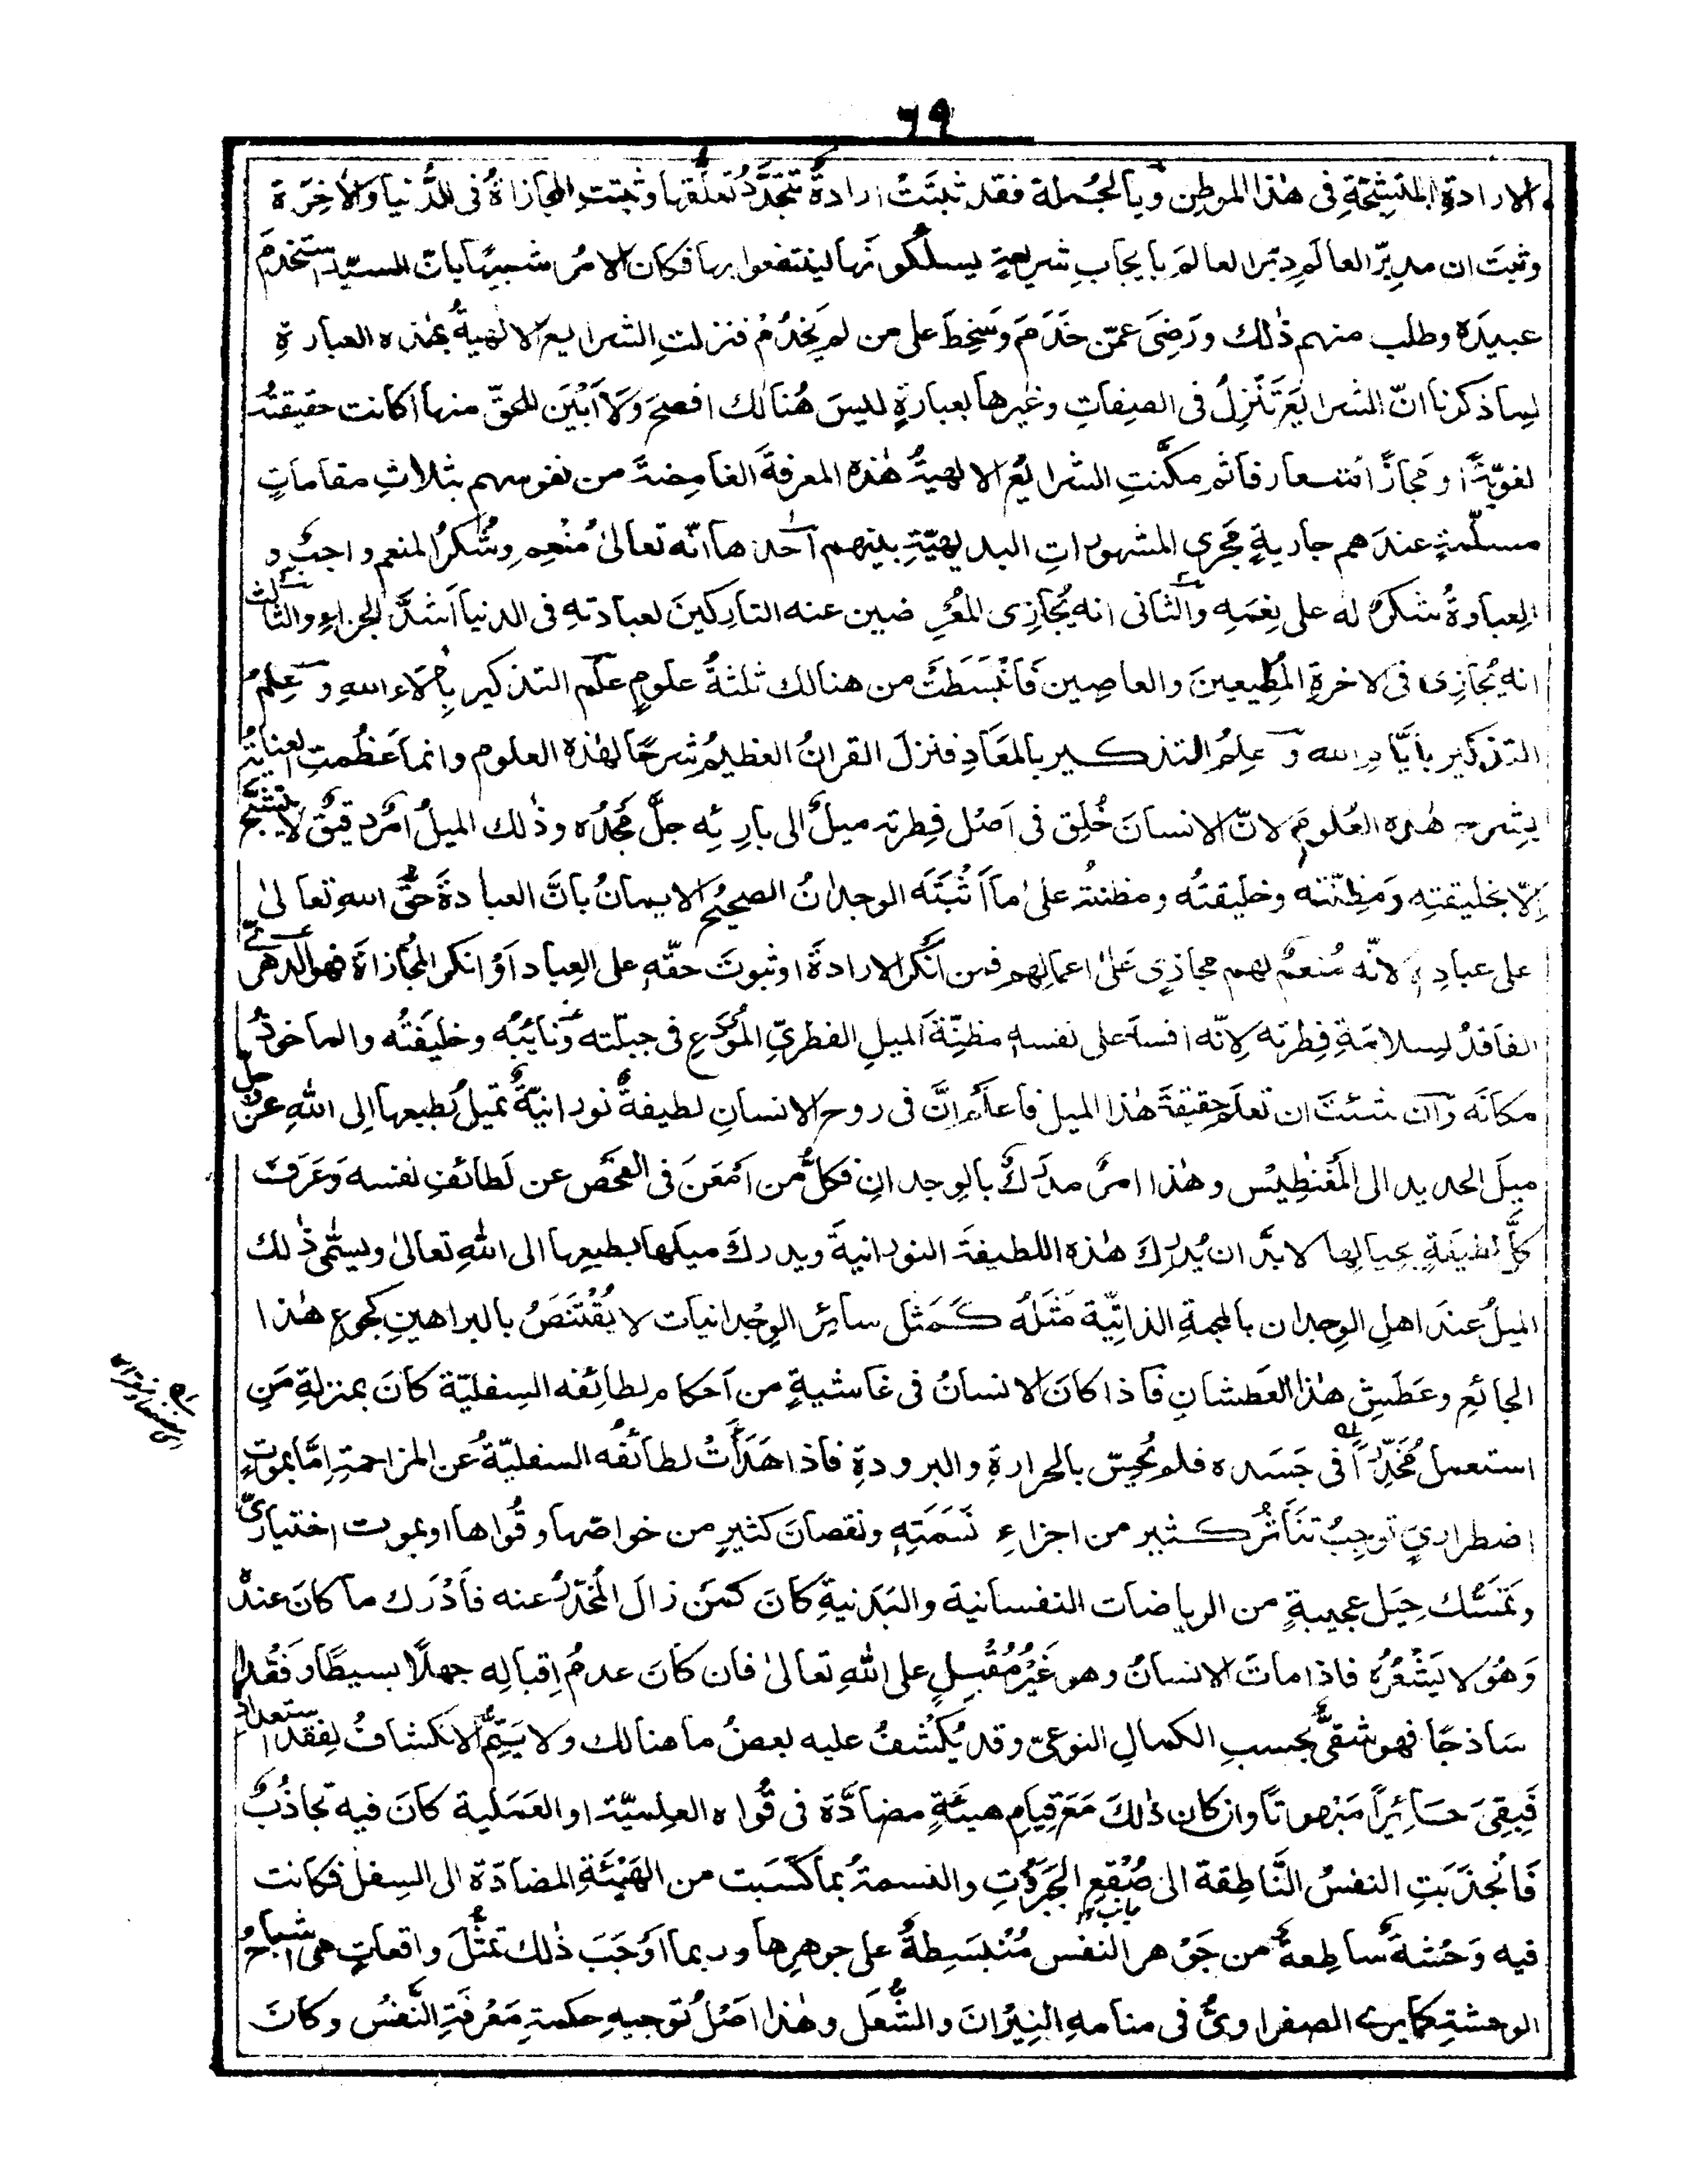 ٦٩
الارادةِ المتشبّحةِ فى هٰذا الموطنِ وبالجُملة فقد ثبتَتْ ارادةٌ تتجدّدُ تعلّقها وثبتتِ المجازاةُ فى الدُّنيا والاٰخِرَة
وثبتَ ان مدبِّرَ العالَمِ دبّر العالمَ بايجابِ شريعةٍ يسلُكونَها لينتفعوا بها فكان الامرُ شبيهًا بانّ السيّد استخدمَ
عبيدَه وطلب منهم ذٰلك ورَضِىَ عمّن خَدَمَ وسَخِطَ على من لم يَخدُمْ فنزلتِ الشرايع الالٰهيةُ بهٰذه العبارةِ
لِما ذكرنا انّ الشرايعَ تَنزِلُ فى الصِفاتِ وغيرها بعبارةٍ ليسَ هُنالك افصحَ ولَا اَبْيَن للحقّ منها اكانت حقيقتةً
لغويّةً او مَجازًا متعارفا ثم مكّنتِ الشرايعُ الالٰهيةُ هٰذه المعرفةَ الغامِضةَ من نفوسهم بثلاثِ مقاماتٍ
مسلّمةٍ عندَهم جاريةٍ مَجرى المشهوراتِ البديهيّةِ بينهم احدها انّه تعالىٰ مُنْعِم وشُكرُ المنعم واجبٌ و
العبادةُ شكرٌ له على نِعَمِه والثانى انه يُجازِى المُعرِضين عنه التاركينَ لعبادتهِ فى الدنيا اَشدَّ الجزاءِ والثالث
انه يُجازِى فى الاخرةِ المُطيعينَ والعاصِين فَانبَسَطَتْ من هنالك ثلثةُ علومٍ علم التذكير بِاٰلاءِ اللهِ وعِلمُ
التذكير باَيّامِ الله وعِلمُ التذكير بالمعَادِ فنزلَ القرانُ العظيمُ شرحًا لهٰذه العلوم وانما عَظُمتِ العنايةُ
بِشرح هٰذه العُلومِ لانّ الانسانَ خُلِق فى اَصْل فِطرته ميلٌ الى بارِئِه جلَّ مَجدُه وذٰلك الميلُ امرٌ دقيقٌ لا يتشبّح
اِلّا بخليقتِهٖ ومَظِنّته وخليقتُه ومظنتُه علىٰ ما اَثْبَتَه الوجدانُ الصحيحُ الايمانُ بانَّ العبادةَ حقُّ اللهِ تعالىٰ
على عبادِهٖ لانّه مُنعمٌ لهم مجازٍى عَلىٰ اعمالِهم فمن اَنْكَر الارادةَ او ثبوتَ حقّهِ على العِباد اَوْ انكر المُجازاةَ فهو الدهرىّ
الفاقدُ لِسلامَةِ فِطرتهٖ لِانّه افسدَ على نفسهٖ مظِنّةَ الميلِ الفطرىِّ المُودَعِ فى جبلّته ونائبَه وخليفتُه والماخوذُ
مكانَه وان شئتَ ان تعلَم حقيقةَ هٰذا الميل فاعلَمْ انَّ فى روح الانسانِ لطيفةٌ نورانيّةٌ تميلُ بطبعها اِلى اللهِ عزّ وجلّ
ميلَ الحديد الى المَقنَطِيْس وهٰذا امرٌ مدرَكٌ بالوِجدانِ فكلُّ من اَمْعَنَ فى الفَحص عن لَطائفِ نفسه وَعَرَفَ
كلَّ لطيفةٍ بحيالِها لا بدّ ان يُدرِكَ هٰذه اللطيفةَ النورانيةَ ويدركَ ميلَها بطبعِها الى اللهِ تعالىٰ ويسمّى ذٰلك
الميلُ عندَ اهلِ الوِجدان بالمحبةِ الذاتِيّة مَثَلُهُ كَمَثَل سائرِ الوِجدانيات لا يُقْتَنَصُ بالبراهينِ كجوعِ هٰذا
الجائعِ وعَطَشِ هٰذا العَطشانِ فاَذا كانَ الانسانُ فى غاشيةٍ من اَحكام لطائفه السِفليّة كانَ بمنزلةِ مَن
استعمل مُخَدِّرًا فى جَسَده فلم يُحِسّ بالحرارةِ والبرودةِ فاذا هَدَأَتْ لطائفُه السفليّةُ عن المزاحمةِ اِمّا بموتٍ
اضطرارىٍ توجِبُ تنَاثُرَ كثير من اجزاءِ نَسَمَتِهٖ ونقصانَ كثيرٍ من خواصّها وقُواها او بموت اختيارىٍّ
وتَمَسُّك حِيَل عجيبةٍ من الرياضات النفسانية والبَدَنيةِ كانَ كمَن زالَ المُخدِّرُ عنه فاَدْرَك ما كانَ عندَه
وَهُوَ لا يَشْعُرُ بِه فاذا ماتَ الانسانُ وهو غَيْرُ مُقْبِلٍ على اللهِ تعالىٰ فان كانَ عدمُ اِقبالِه جهلًا بسيطًا وفَقْدًا
سَاذجًا فهو شقىٌّ بحسبِ الكمالِ النوعىّ وقد يُكشَفُ عليه بعضُ ما هنالك ولا يَتِمُّ الانكشافُ لِفقد استعدادٍ
فَبِقِىَ حَائِرًا مَبْهوتًا وان كان ذٰلكَ مَعَ قِيامِ هيئةٍ مضادَّة فى قُواه العلميّة او العَمَلية كانَ فيه تجاذُبٌ
فَانْجذَبَتِ النفسُ النَّاطِقة الى صُقعِ الجَبَرُوتِ والنسمةُ بما كسَبَت من الهَيْئَةِ المضادّة الى السِفل فكانت
فيه وَحْشةٌ ساطِعةٌ من جَوْهر النفس مُنْبَسِطةٌ على جوهرِها وربما اَوْجَبَ ذٰلك تمثّلَ واقعاتٍ هى اشباحُ
الوحشةِ كما يرى الصفراوىُّ فى منامهِ النِيْرانَ والشُّعَل وهٰذا اصْلُ توجيهِ حكمةِ مَعْرِفَةِ النَّفسُ وكانَ